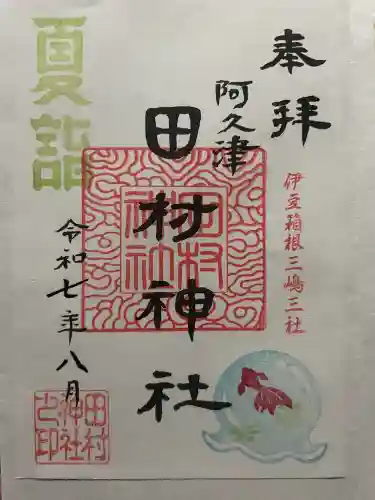 奉拝
阿久津
田村神社
伊豆箱根三嶋三社
夏詣
令和七年八月
田村神社
田村神社之印